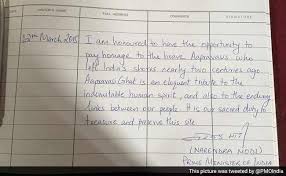 FULL ADDRESS COMMENTS SIGNATURE
12th March 2015
I am honoured to have the opportunity to
pay homage to the brave Aapravasis who
left India's shores nearly two centuries ago.
Aapravasi Ghat is an eloquent tribute to the
indomitable human spirit, and also to the enduring
links between our people. It is our sacred duty to
treasure and preserve this site.
(NARENDRA MODI)
PRIME MINISTER OF INDIA
This picture was tweeted by @PMOIndia